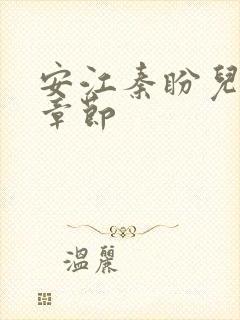 安江秦盼兒
章節
溫麗